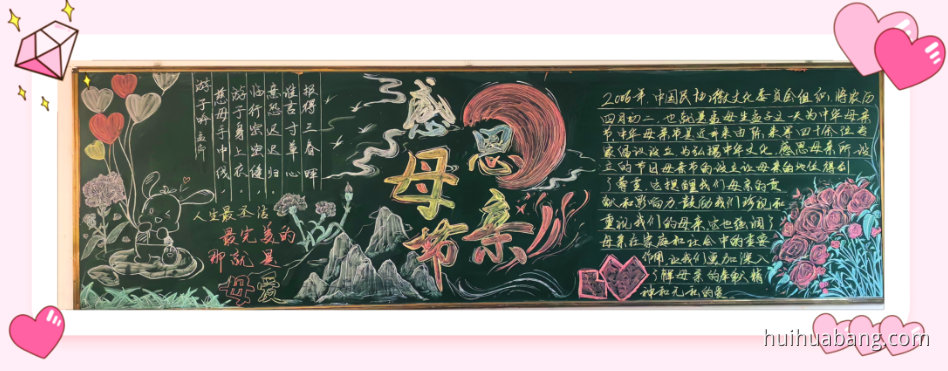 游子吟 孟郊
慈母手中线
游子身上衣,
临行密密缝,
意恐迟迟归.
谁言寸草心
报得三春晖
人生最圣洁
最完美的
那就是
母爱
感恩
母亲节
2006年,中国民协节文化委员会组织,将农历
四月初二,也就是孟母生孟子这一天为中华母亲
节,中华母亲节是近年来由 来等四十余位专
家倡议设立,为弘扬中华文化,感恩母亲所设
立的节日,母亲节的设立让母亲的地位得到
了尊重,这提醒我们母亲的贡
献和影响力,鼓励我们珍视和
重视我们的母亲,它也强调了
母亲在家庭和社会中的重要
作用,让我们更加深入
了解母亲的奉献精
神和无私的爱.
huihuabang.com